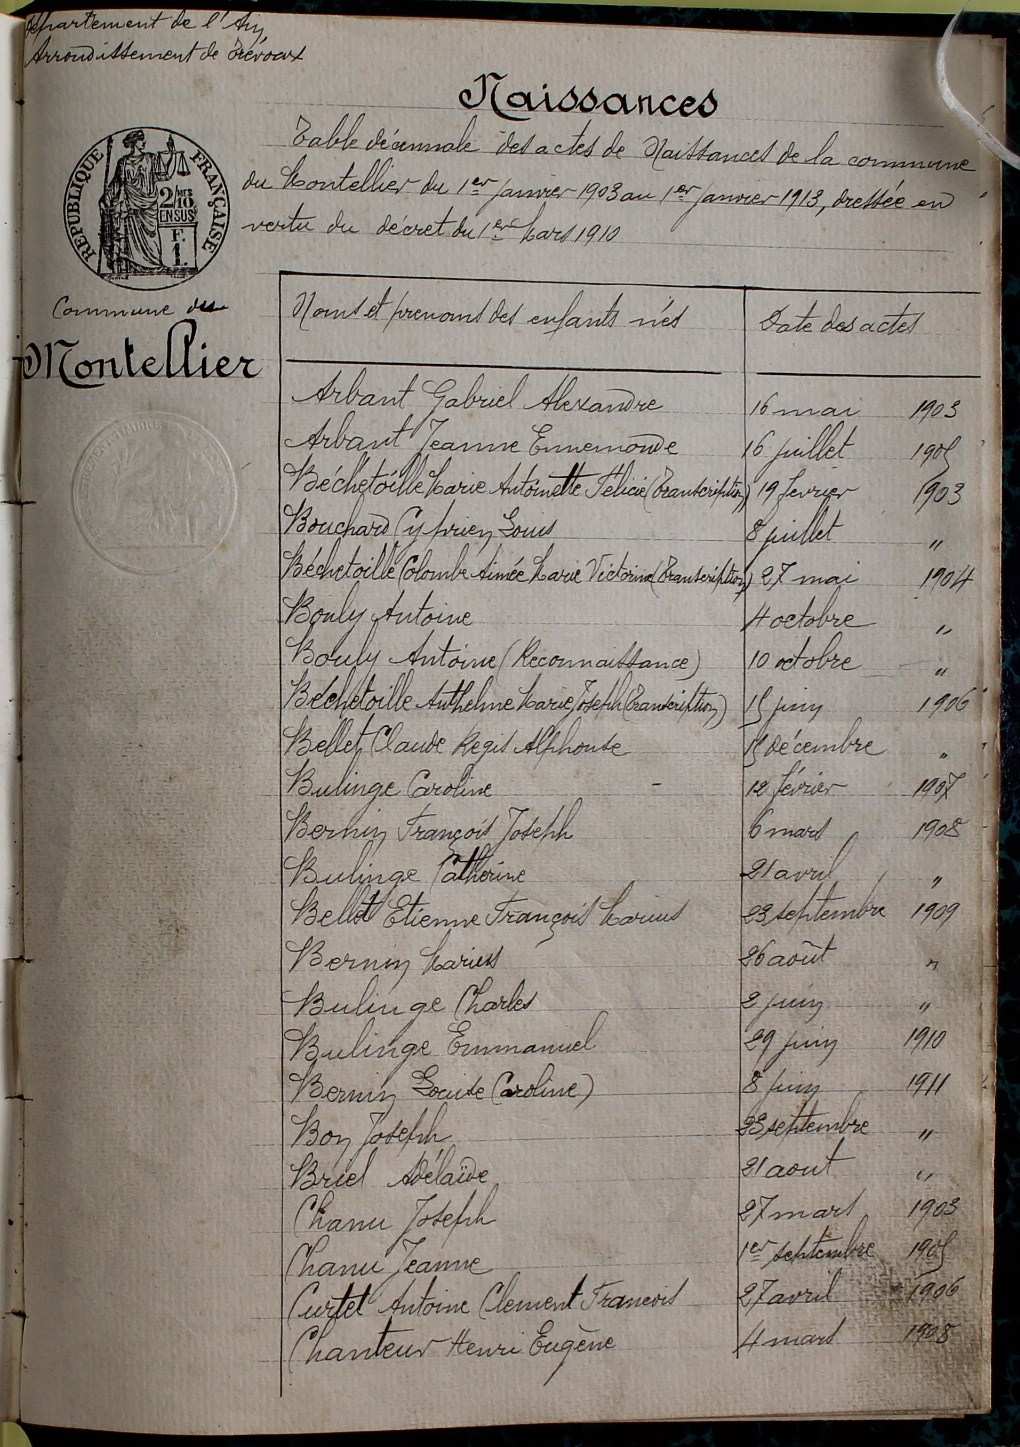 Département de l'Ain
Arrondissement de Trévoux
Naissances
Table décennale des actes de Naissances de la commune
du Montellier du 1er janvier 1903 au 1er janvier 1913, dressée en
vertu du décret du 1er Mars 1910
RÉPUBLIQUE FRANÇAISE
2/10 EN SUS
F. 1.
Commune du
Montellier
Noms et prenoms des enfants nés Date des actes
Arbant Gabriel Alexandre 16 mai 1903
Arbant Jeanne Ennemonde 16 juillet 1905
Béchetoille Marie Antoinette Félicie (Transcription) 19 fevrier 1903
Bouchard Cyprien Louis 8 juillet "
Béchetoille Colombe Aimée Marie Victorine (Transcription) 27 mai 1904
Bouly Antoine 4 octobre "
Bouly Antoine (Reconnaissance) 10 octobre "
Béchetoille Anthelme Marie Joseph (Transcription) 15 juin 1906
Bellet Claude Régis Alphonse 15 décembre "
Bulinge Caroline 12 février 1907
Bernin François Joseph 6 mars 1908
Bulinge Catherine 21 avril "
Bellet Etienne François Marius 23 septembre 1909
Bernin Marius 26 août "
Bulinge Charles 2 juin "
Bulinge Emmanuel 29 juin 1910
Bernin Louise (Caroline) 8 juin 1911
Bon Joseph 23 septembre "
Briel Adélaïde 21 aout "
Chanu Joseph 27 mars 1903
Chanu Jeanne 1er septembre 1905
Curtet Antoine Clement Francois 27 avril 1906
Chanteur Henri Eugène 4 mars 1908